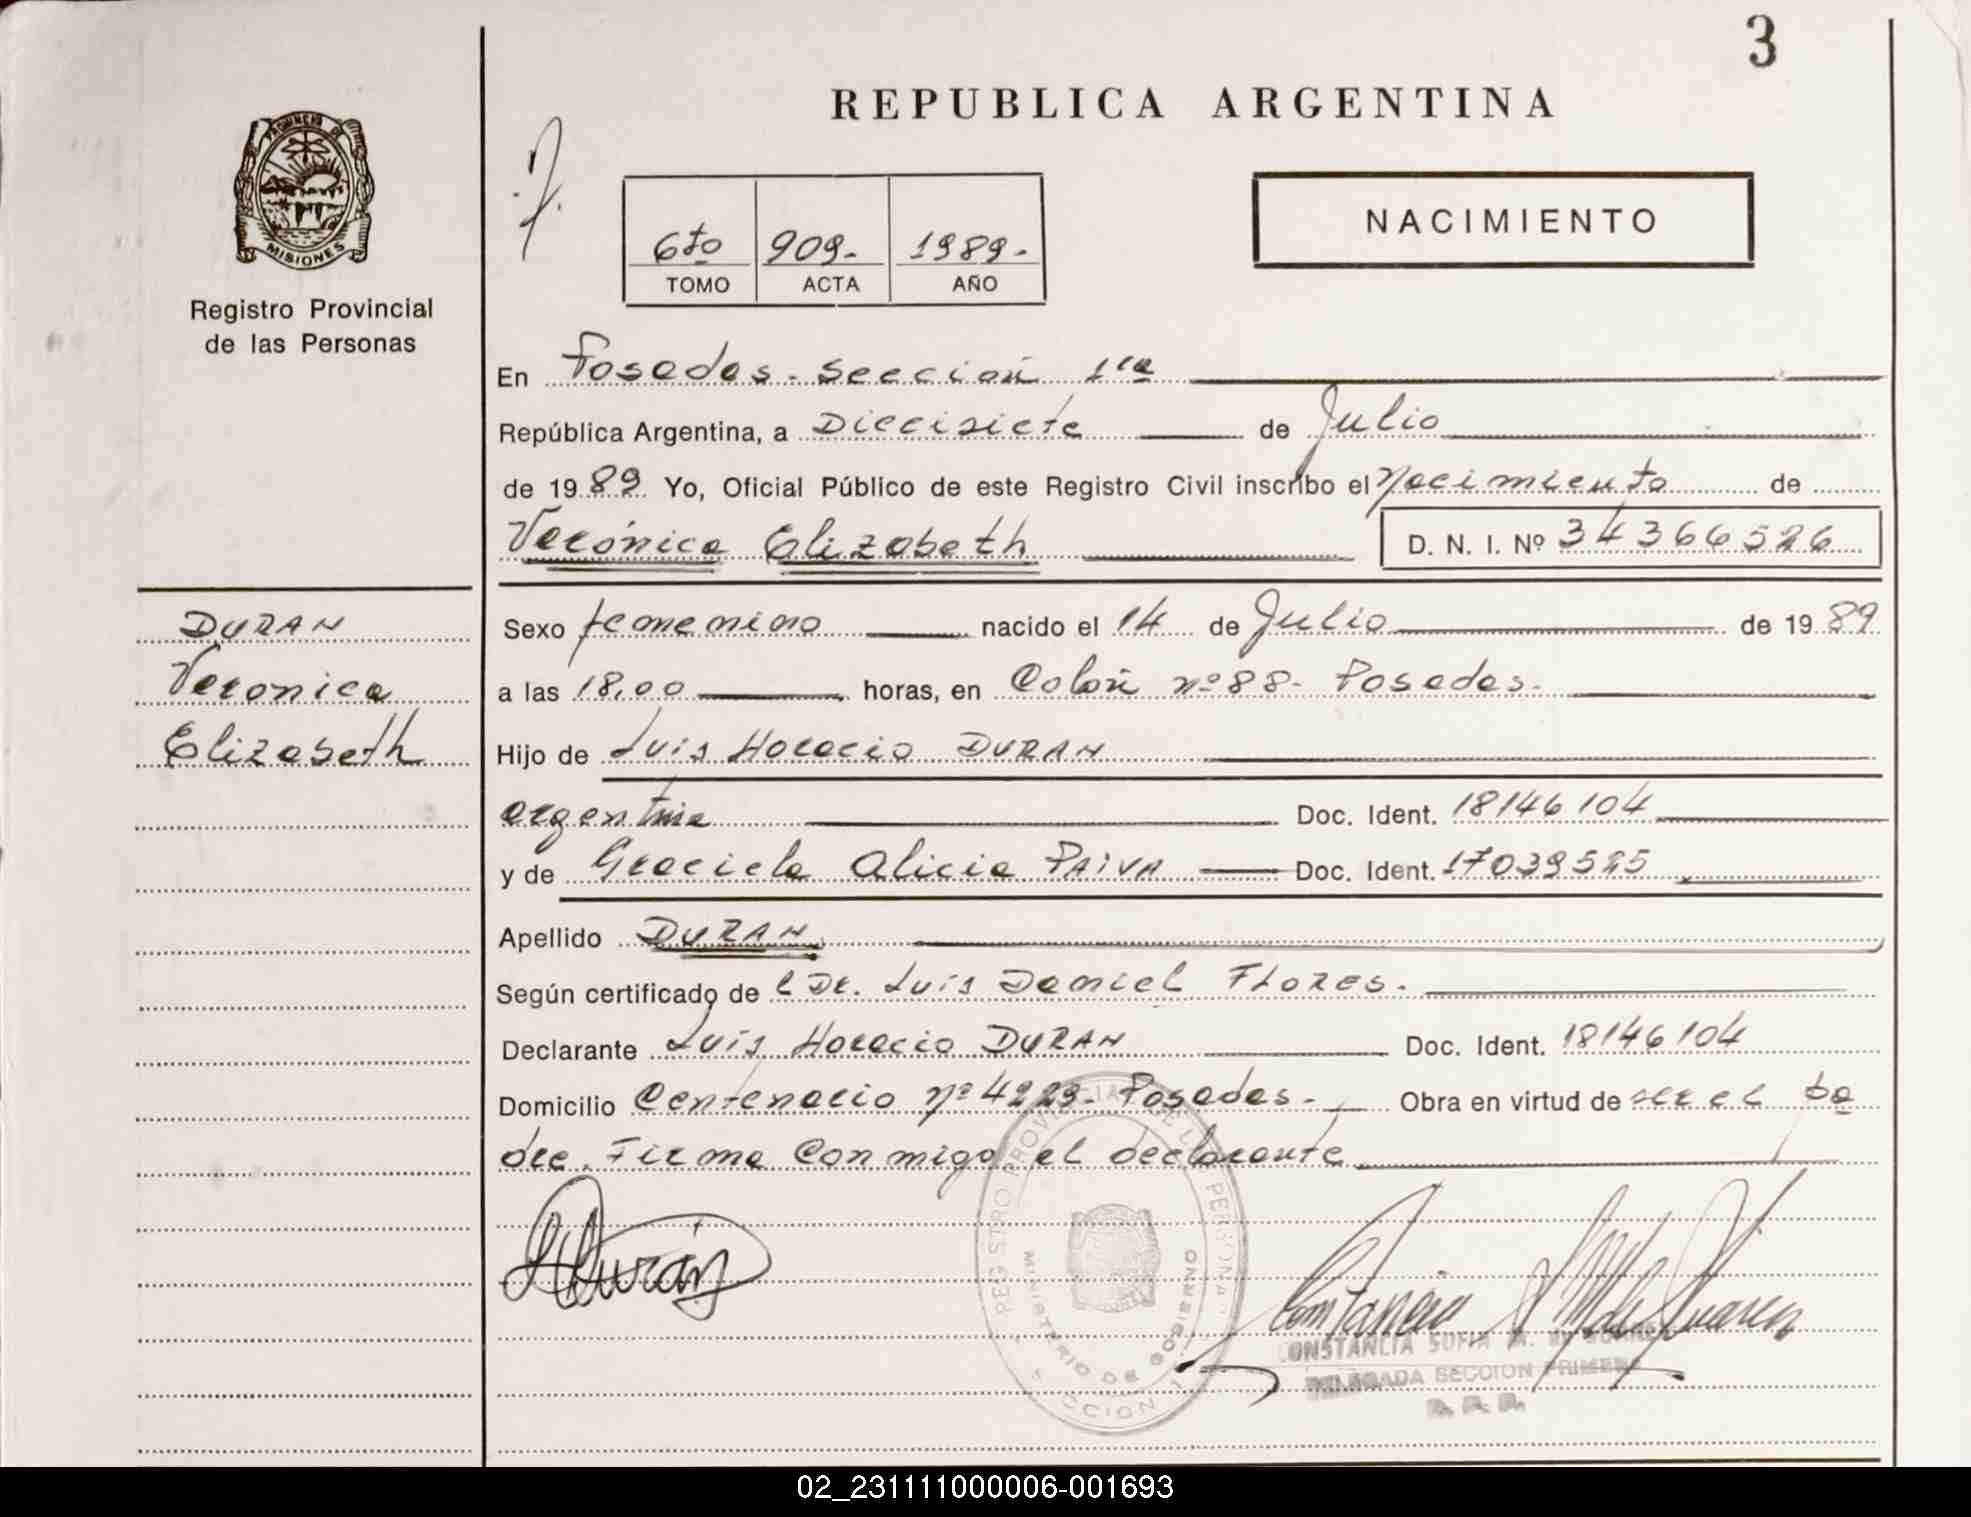 3
REPUBLICA ARGENTINA
PROVINCIA DE
MISIONES
Registro Provincial
de las Personas
6to 909- 1989-
TOMO ACTA AÑO
NACIMIENTO
En Posadas - Sección 1ra
República Argentina, a Diecisiete de Julio
de 1989 Yo, Oficial Público de este Registro Civil inscribo el Nacimiento de
Verónica Elizabeth D. N. I. Nº 34366526
DURAN
Veronica
Elizabeth
Sexo femenino nacido el 14 de Julio de 1989
a las 18,00 horas, en Colón nº 88- Posadas-
Hijo de Luis Horacio DURAN
argentina Doc. Ident. 18146104
y de Graciela Alicia PAIVA Doc. Ident. 17039525
Apellido DURAN
Según certificado de l Dr. Luis Daniel FLORES.
Declarante Luis Horacio DURAN Doc. Ident. 18146104
Domicilio Centenario nº 4223- Posadas- Obra en virtud de ser el pa
dre. Firma Conmigo el declarante
Durán
REGISTRO PROVINCIAL DE LAS PERSONAS
MINISTERIO DE GOBIERNO
SECCION 1
CONSTANCIA SOFIA M. DE
DELEGADA SECCION PRIMERA
02_231111000006-001693